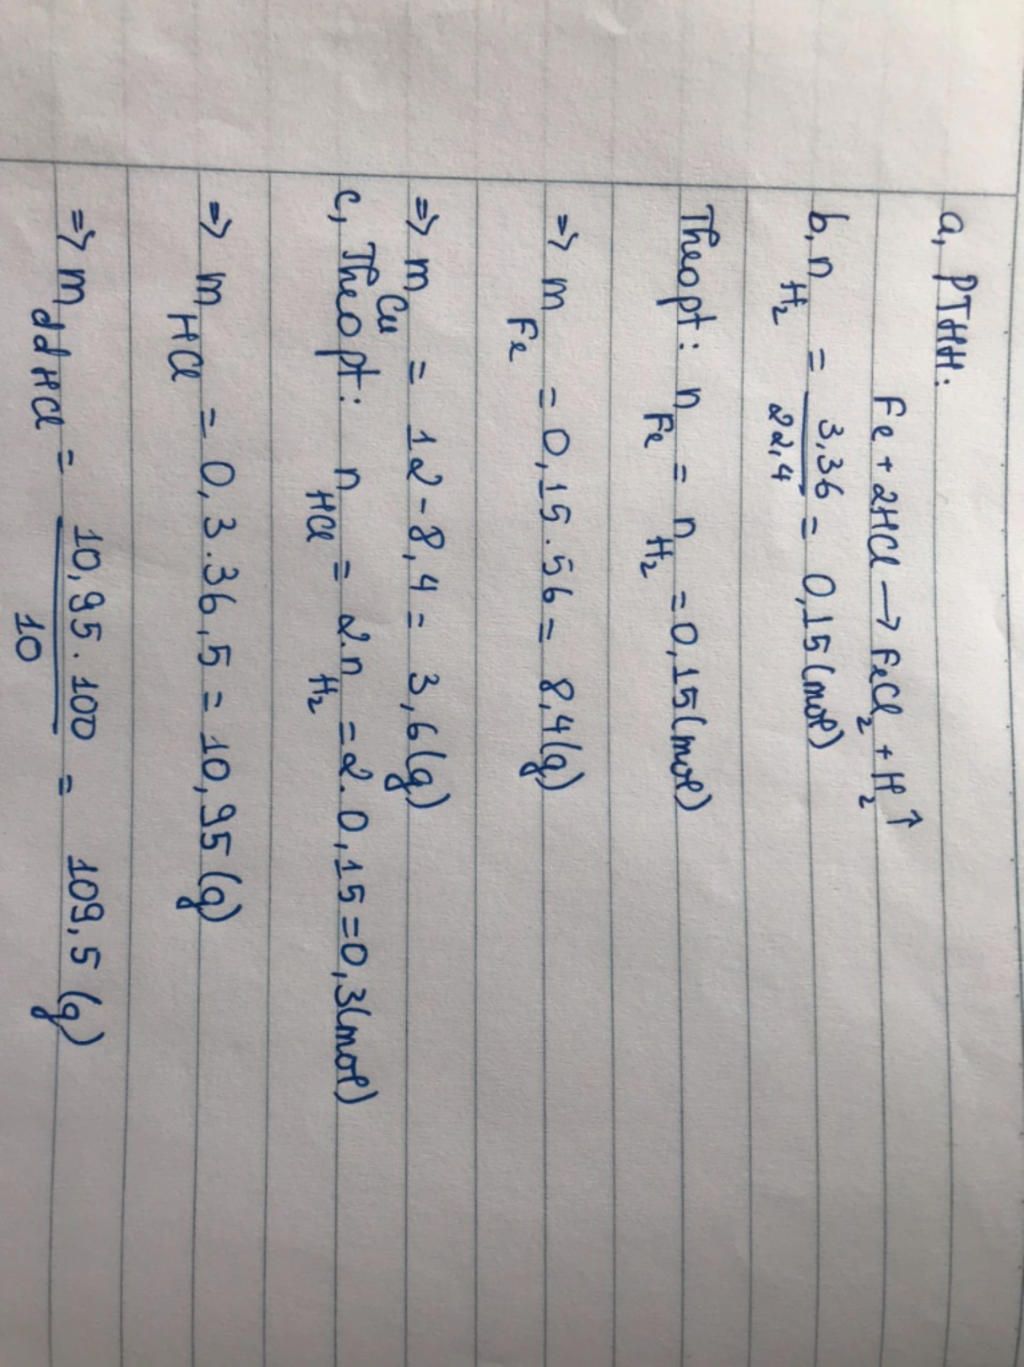 a, PTHH:
Fe + 2HCl → FeCl₂ + H₂ ↑
b, n H₂ = 3,36 / 22,4 = 0,15 (mol)
Theo pt: n Fe = n H₂ = 0,15 (mol)
⇒ m Fe = 0,15 . 56 = 8,4 (g)
⇒ m Cu = 12 - 8,4 = 3,6 (g)
c, Theo pt: n HCl = 2.n H₂ = 2 . 0,15 = 0,3 (mol)
⇒ m HCl = 0,3 . 36,5 = 10,95 (g)
⇒ m dd HCl = 10,95 . 100 / 10 = 109,5 (g)